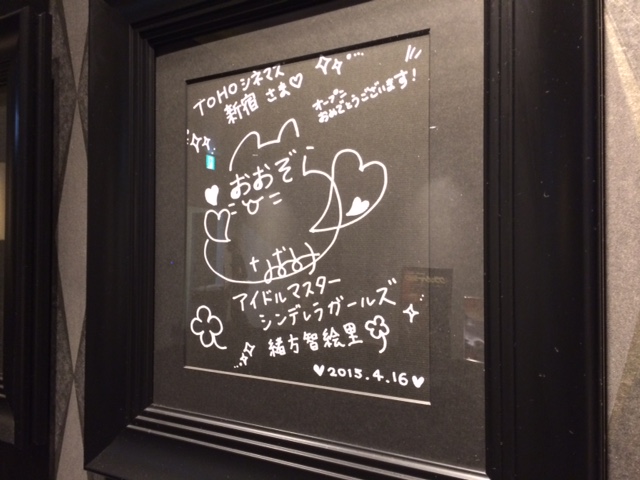 TOHOシネマズ
新宿 さま♡
オープン
おめでとうございます!
おおぞら
アイドルマスター
シンデレラガールズ
緒方智絵里
♥2015.4.16♥